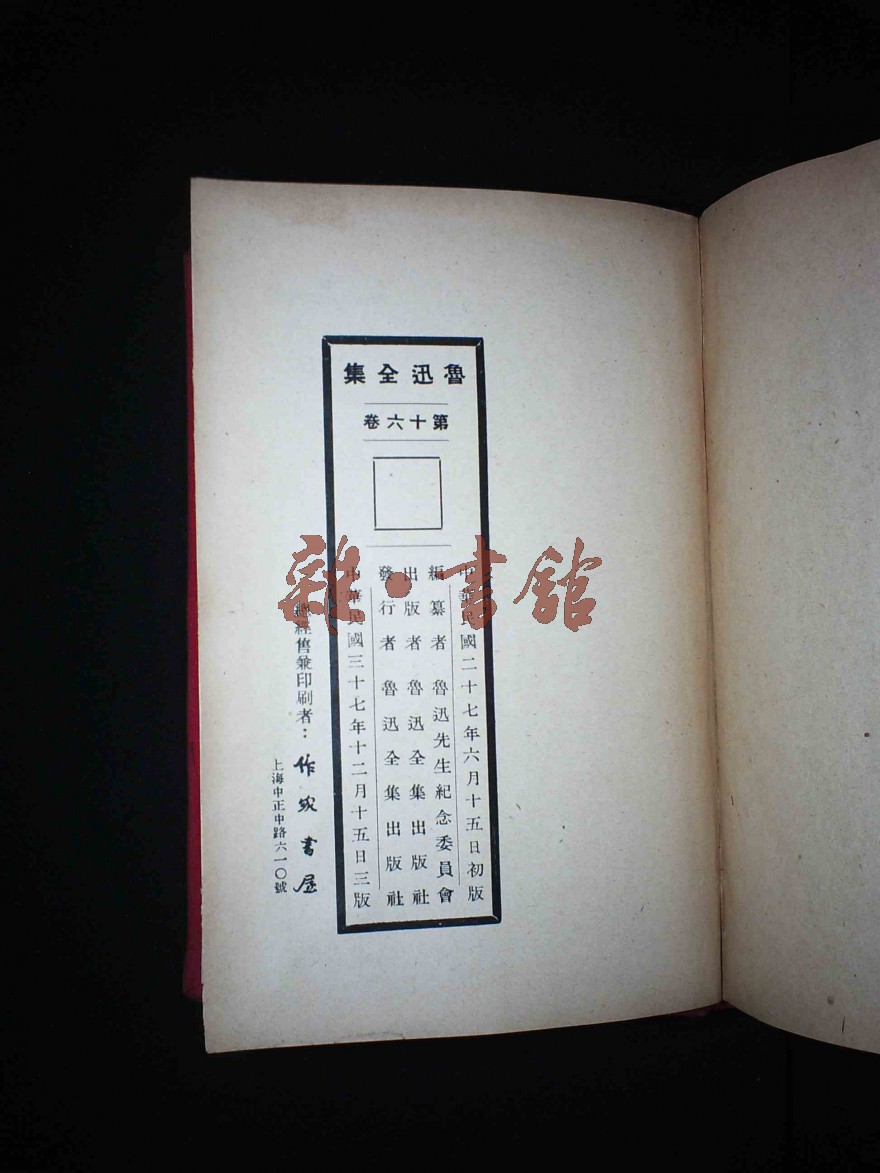 魯迅全集
第十六卷
中華民國二十七年六月十五日初版
編纂者 魯迅先生紀念委員會
出版者 魯迅全集出版社
發行者 魯迅全集出版社
中華民國三十七年十二月十五日三版
總經售兼印刷者：作家書屋
上海中正中路六一〇號
雜·書館